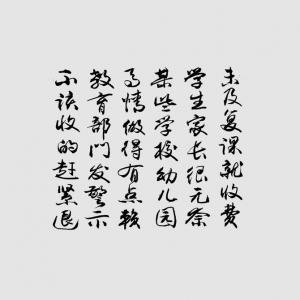 未及复课就收费
学生家长很无奈
某些学校幼儿园
事情做得有点赖
教育部门发警示
不该收的赶紧退